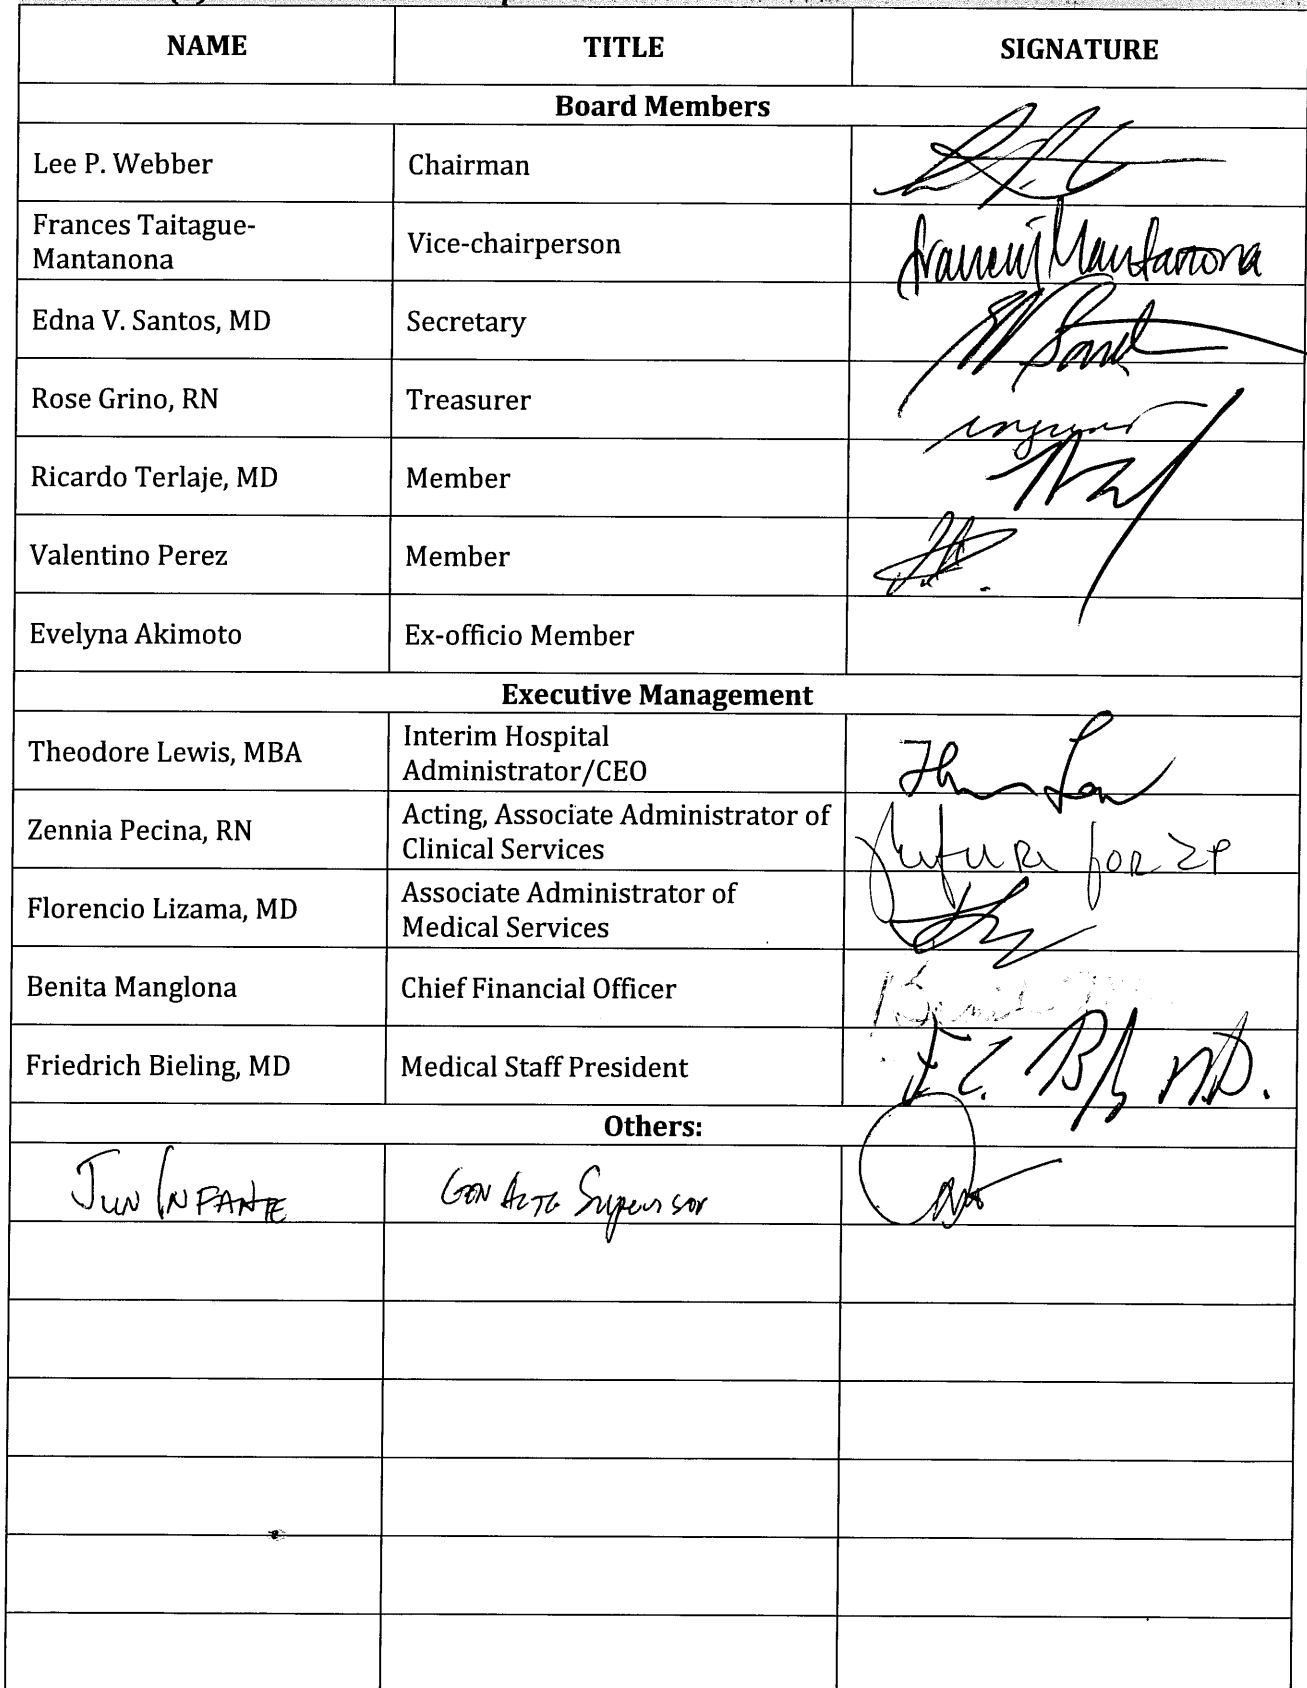 NAME TITLE SIGNATURE
Board Members
Lee P. Webber Chairman
Frances Taitague-
Mantanona Vice-chairperson Frances Mantanona
Edna V. Santos, MD Secretary
Rose Grino, RN Treasurer
Ricardo Terlaje, MD Member
Valentino Perez Member
Evelyna Akimoto Ex-officio Member
Executive Management
Theodore Lewis, MBA Interim Hospital
Administrator/CEO
Zennia Pecina, RN Acting, Associate Administrator of
Clinical Services for ZP
Florencio Lizama, MD Associate Administrator of
Medical Services
Benita Manglona Chief Financial Officer
Friedrich Bieling, MD Medical Staff President
Others:
JUN INFANTE GEN ACTG Supervisor